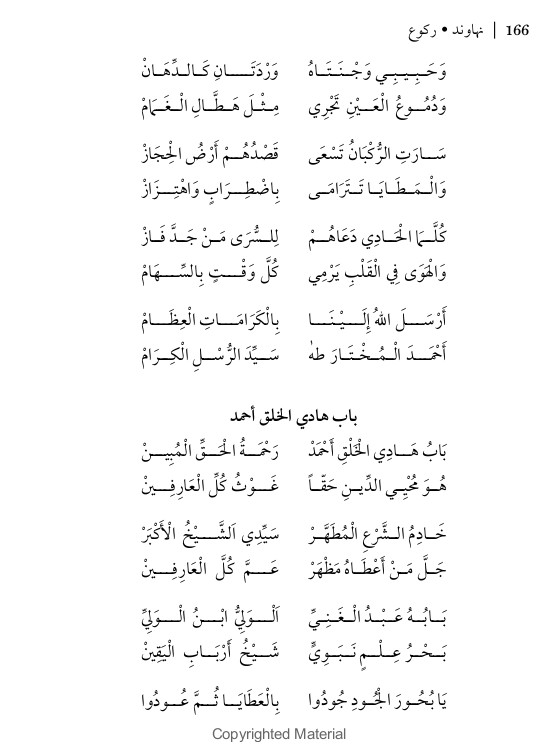 166 | نهاوند • ركوع
وَحَبِـيـبِـي وَجْـنَـتَـاهُ وَرْدَتَـــانِ كَـالـدِّهَـانْ
وَدُمُــوعُ الْـعَـيْنِ تَجْرِي مِـثْـلَ هَـطَّـالِ الْـغَـمَامْ
سَــارَتِ الرُّكْبَانُ تَسْعَى قَصْدُهُــمْ أَرْضُ الْحِجَازْ
وَالْـمَـطَـايَـا تَـتَرَامَـى بِـاضْـطِـرَابٍ وَاهْـتِـزَازْ
كُلَّــمَا الْحَادِي دَعَاهُــمْ لِلـسُّرَى مَـنْ جَـدَّ فَـازْ
وَالْهَوَى فِي الْقَلْبِ يَرْمِي كُلَّ وَقْــتٍ بِالسِّــهَامْ
أَرْسَــلَ اللهُ إِلَـــيْـنَـــا بِالْكَرَامَــاتِ الْعِظَــامْ
أَحْمَـدَ الْـمُـخْـتَـارَ طهٰ سَـيِّـدَ الرُّسْـلِ الْـكِـرَامْ
باب هادي الخلق أحمد
بَابُ هَــادِي الْخَلْقِ أَحْمَدْ رَحْمَـةُ الْحَـقِّ الْمُبِيــنْ
هُـوَ مُحْيِـي الدِّيـنِ حَقّـاً غَــوْثُ كُلِّ الْعَارِفِــينْ
خَـادِمُ الـشَّـرْعِ الْمُطَهَّـرْ سَيِّدِي اَلشَّــيْخُ الْأَكْبَرْ
جَـلَّ مَـنْ أَعْطَـاهُ مَظْهَرْ عَـــمَّ كُلَّ الْعَارِفِــينْ
بَـابُـهُ عَـبْـدُ الْـغَـنِـيِّ اَلْــوَلِيُّ ابْـــنُ الْــوَلِيِّ
بَـحْـرُ عِـلْـمٍ نَـبَـوِيٍّ شَــيْخُ أَرْبَـابِ الْيَقِينْ
يَا بُحُـورَ الْجُـودِ جُودُوا بِالْعَطَايَــا ثُــمَّ عُــودُوا
Copyrighted Material